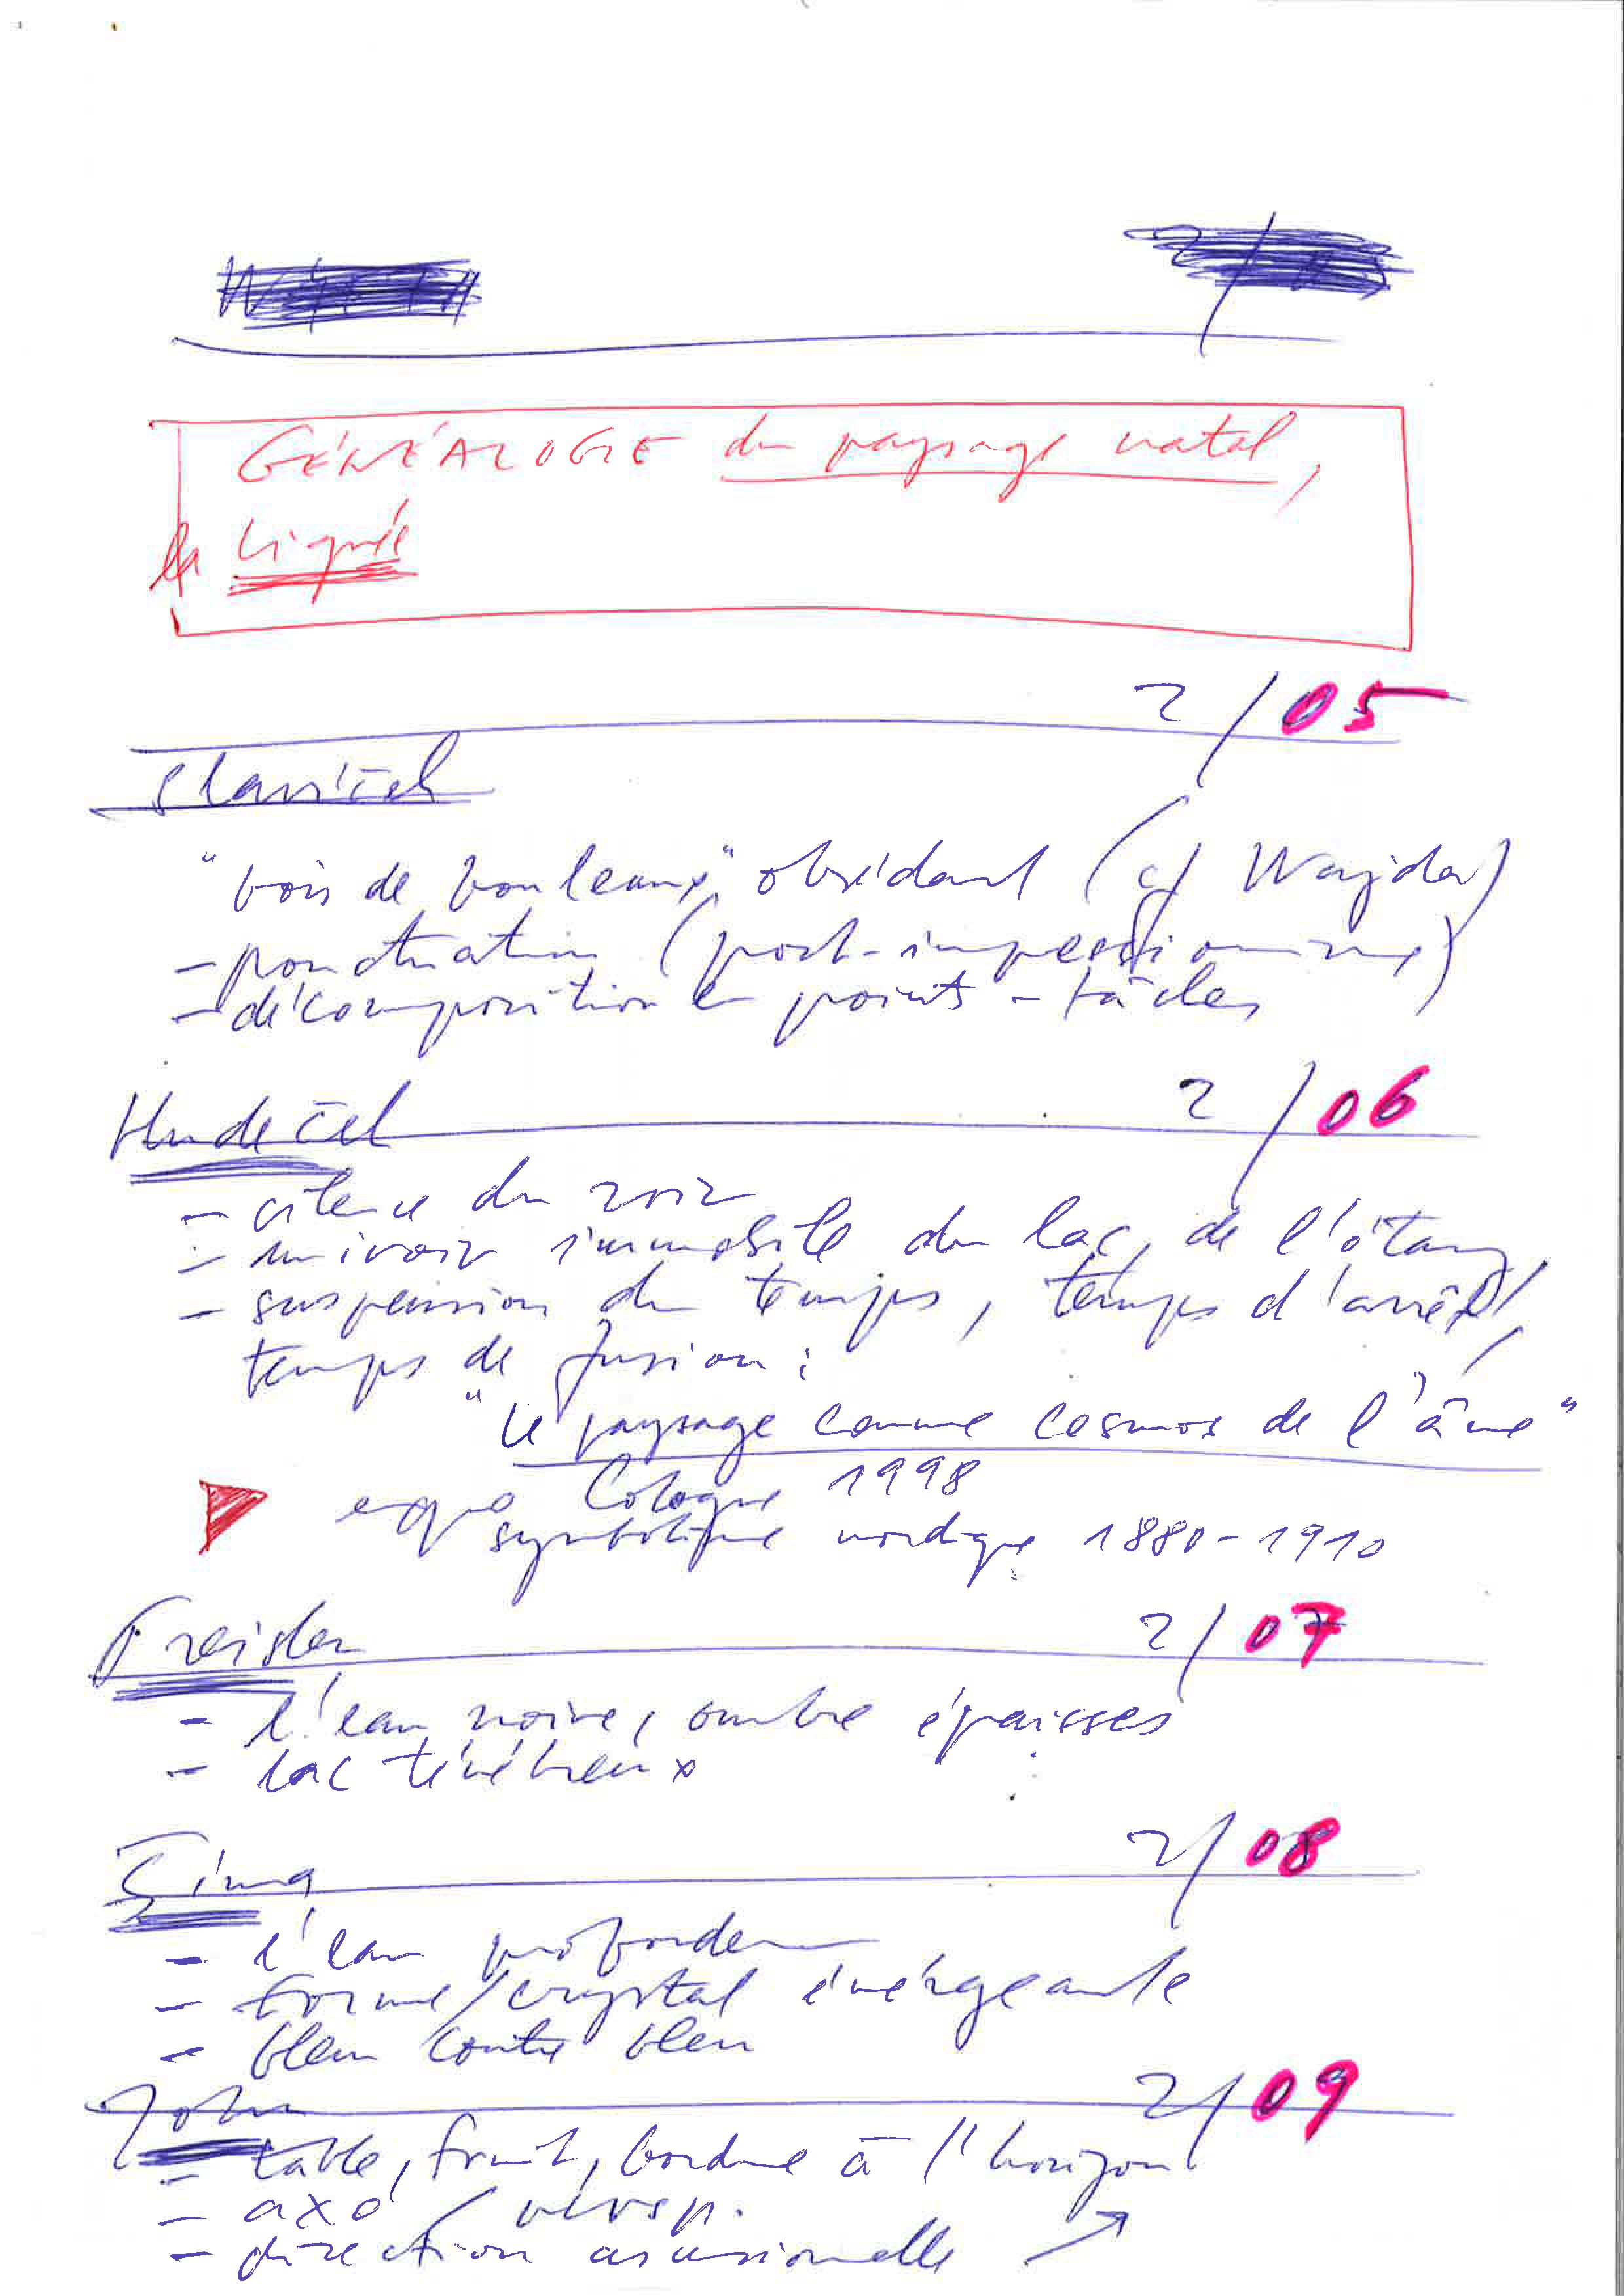 GÉNÉALOGIE du paysage natal,
la lignée
2/05
Slavíček
"bois de bouleaux" obsédant (cf Wajda)
- ponctuation (post-impressionnisme)
- décomposition en points - tâches
2/06
Hudeček
- silence du soir
- miroir immobile du lac, de l'étang
- suspension du temps, temps d'arrêt,
temps de fusion :
"le paysage comme cosmos de l'âme"
expo Cologne 1998
symbolique nordique 1880-1910
2/07
Preisler
- l'eau noire, ombre épaisses
- lac ténébreux
2/08
Šíma
- l'eau profonde
- forme/crystal émergeante
- bleu contre bleu
2/09
John
- table, fruit, bordure à l'horizon
- axo / persp.
- direction ascensionnelle ↗